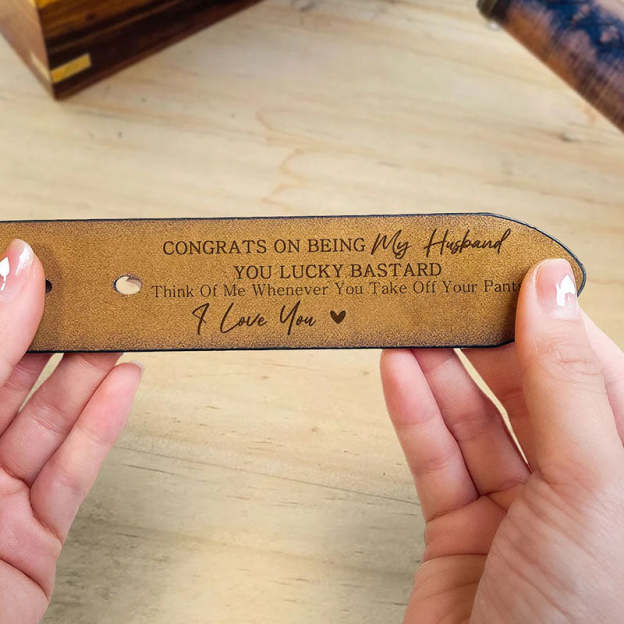 CONGRATS ON BEING My Husband
YOU LUCKY BASTARD
Think Of Me Whenever You Take Off Your Pant
I Love You ♥